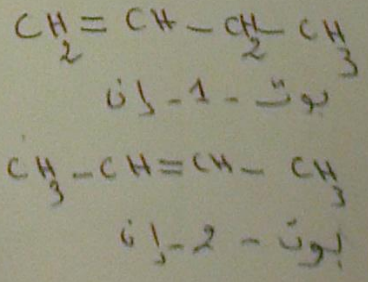 CH₂ = CH – CH₂ – CH₃
بوت - 1 - إن
CH₃ – CH = CH – CH₃
بوت - 2 - إن